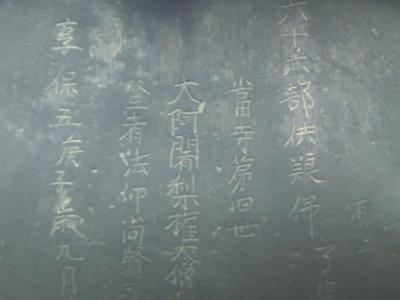 六十六部供養
當寺第四世
大阿闍梨權大僧
竪者法印尚賢
享保五庚子歳九月